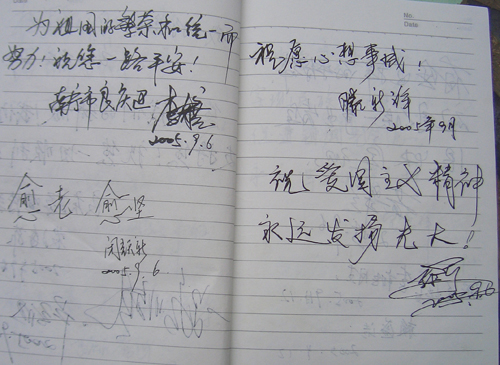 为祖国的繁荣和统一而
努力！祝您一路平安！
南宁市良庆区
2005.9.6
愈老 愈坚
2005.9.6
No.
Date
祝愿心想事成！
2005年9月
祝爱国主义精神
永远发扬光大！
2005.9.6